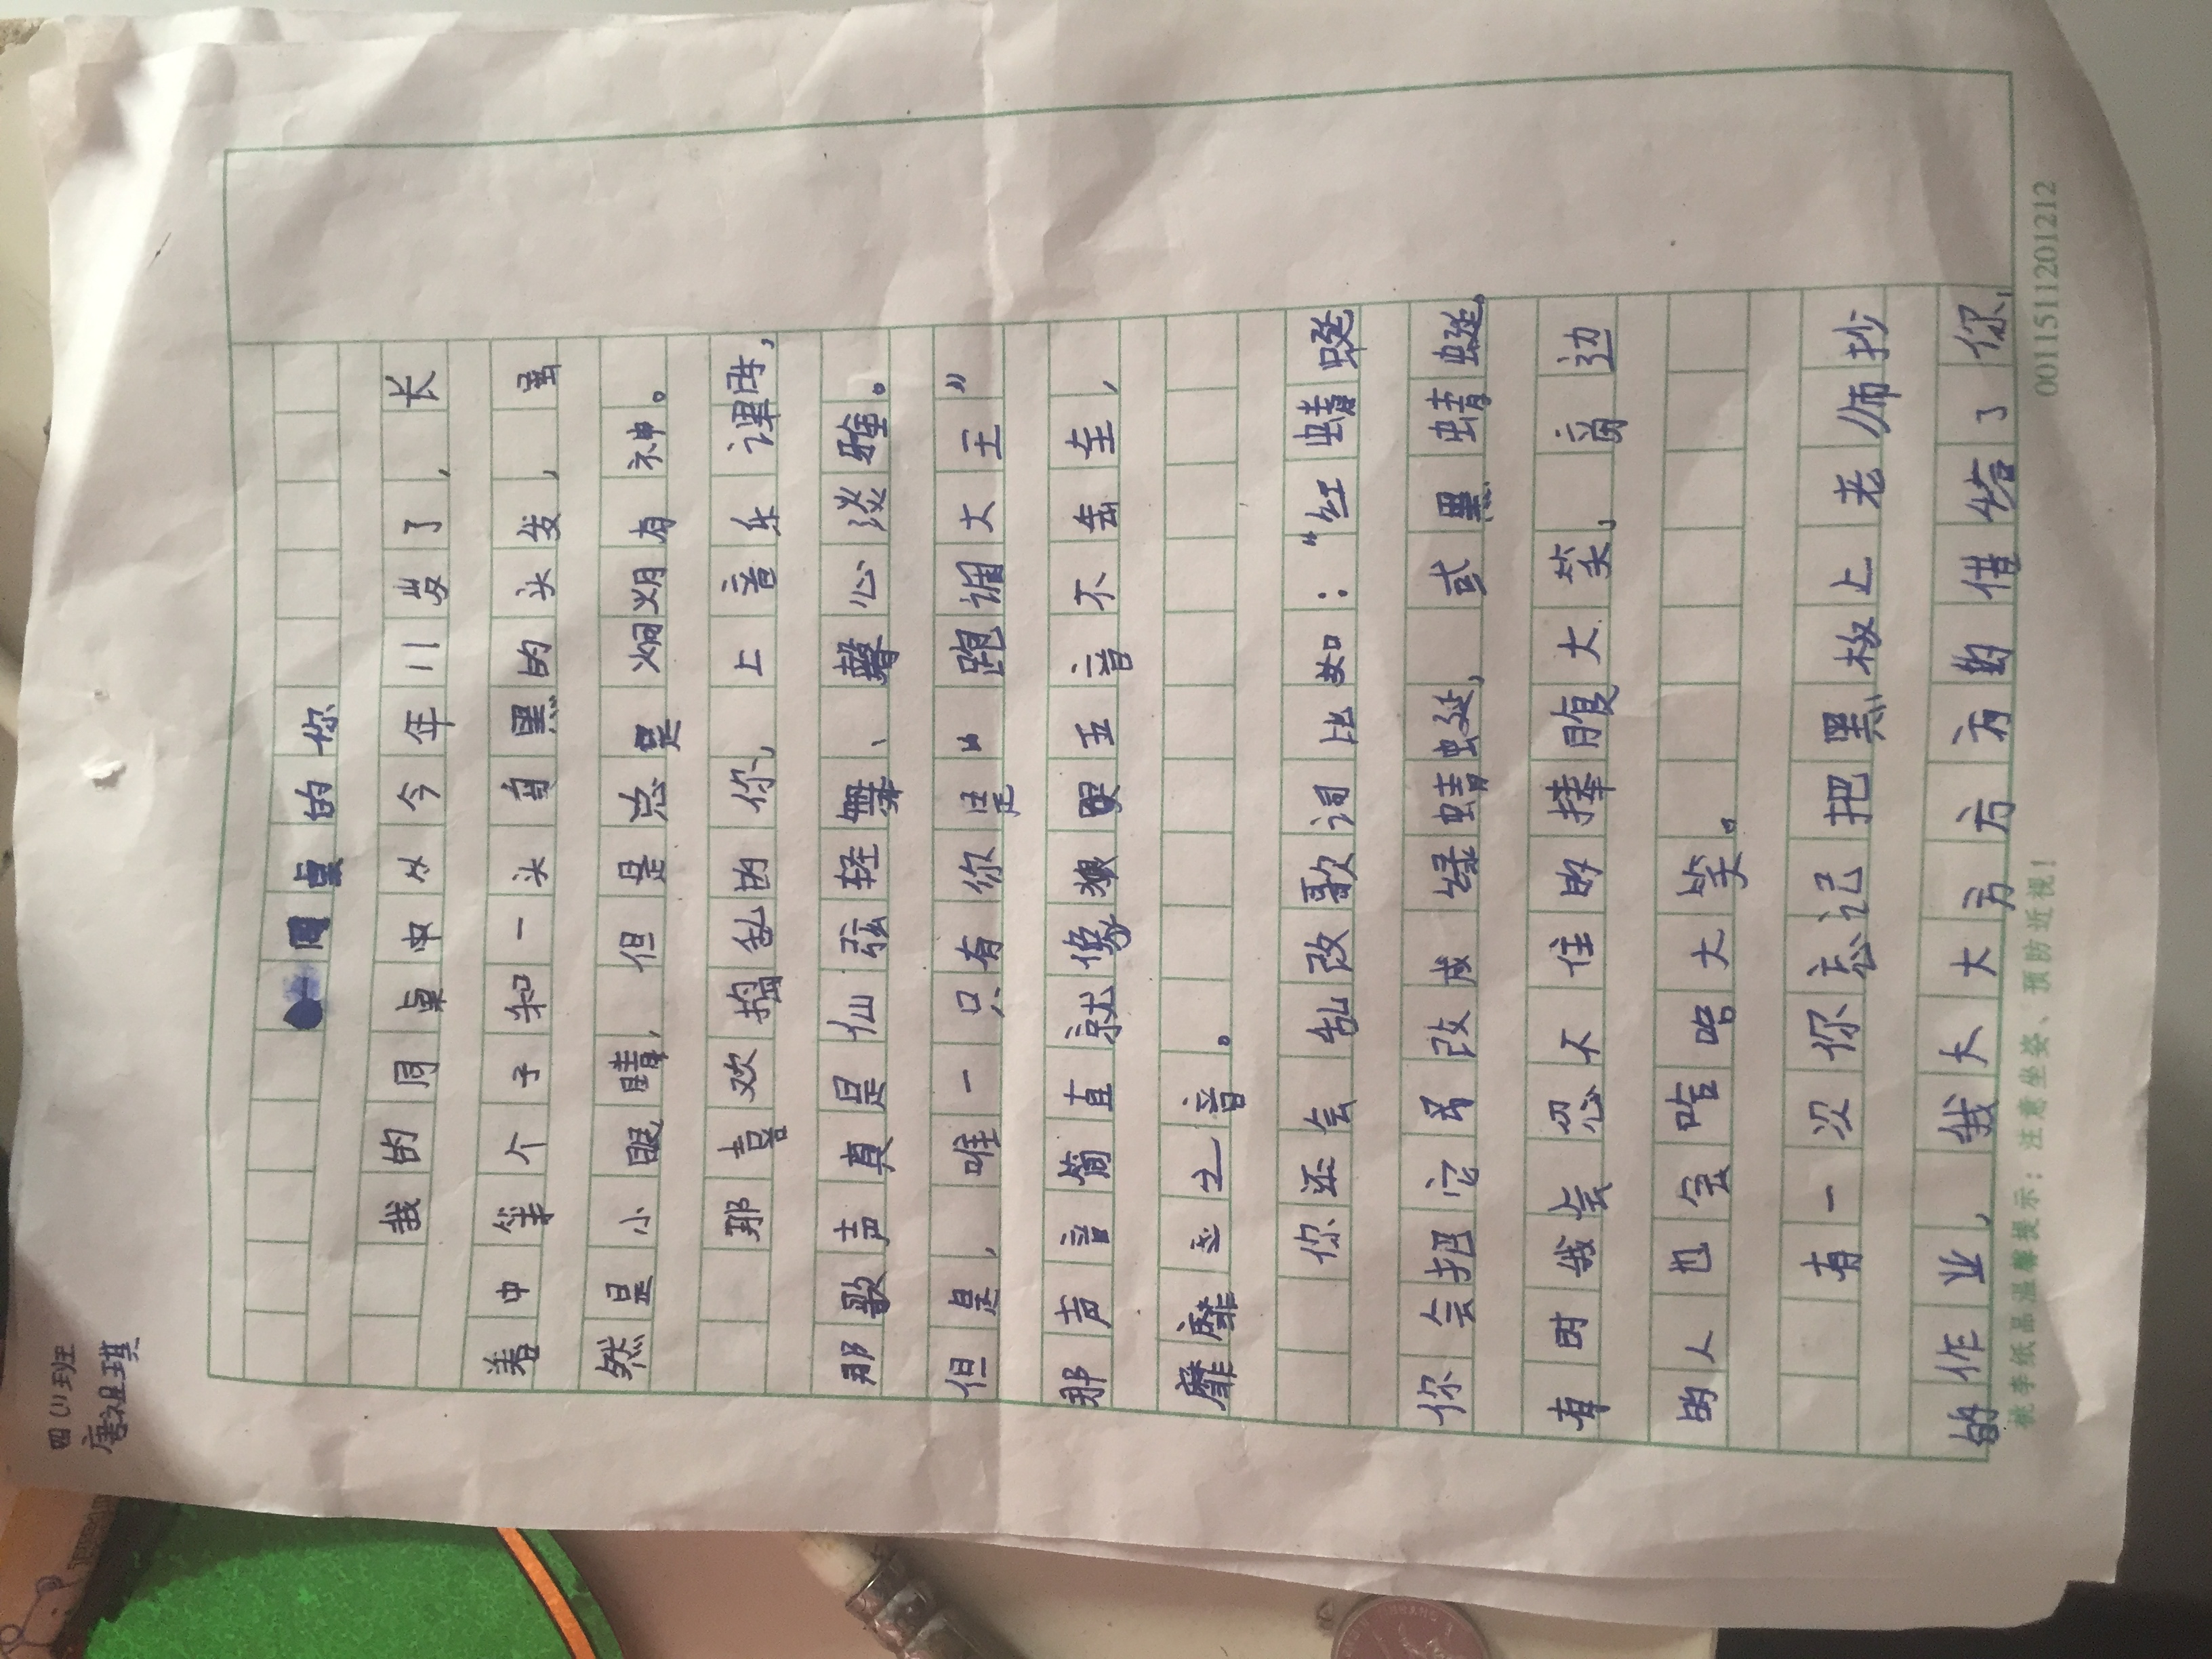 四(1)班
唐祖琪
同桌的你
我的同桌申从今年11岁了，长
着中等个子和一头乌黑的头发，虽
然是小眼睛，但是总是炯炯有神。
那喜欢捣乱的你，上音乐课时，
那歌声真是仙弦轻舞、馨心淡雅。
但是，唯一只有你是“跑调大王”
那声音简直就像狼哭五音不全，
靡靡之音。
你还会乱改歌词比如：“红蜻蜓
你会把它另改成绿蜻蜓，或黑蜻蜓，
有时我会忍不住的捧腹大笑，旁边
的人也会哈哈大笑。
有一次你忘记把黑板上老师抄
的作业，我大大方方的借给了你，
桃李纸品温馨提示：注意坐姿、预防近视！
00115112012​12